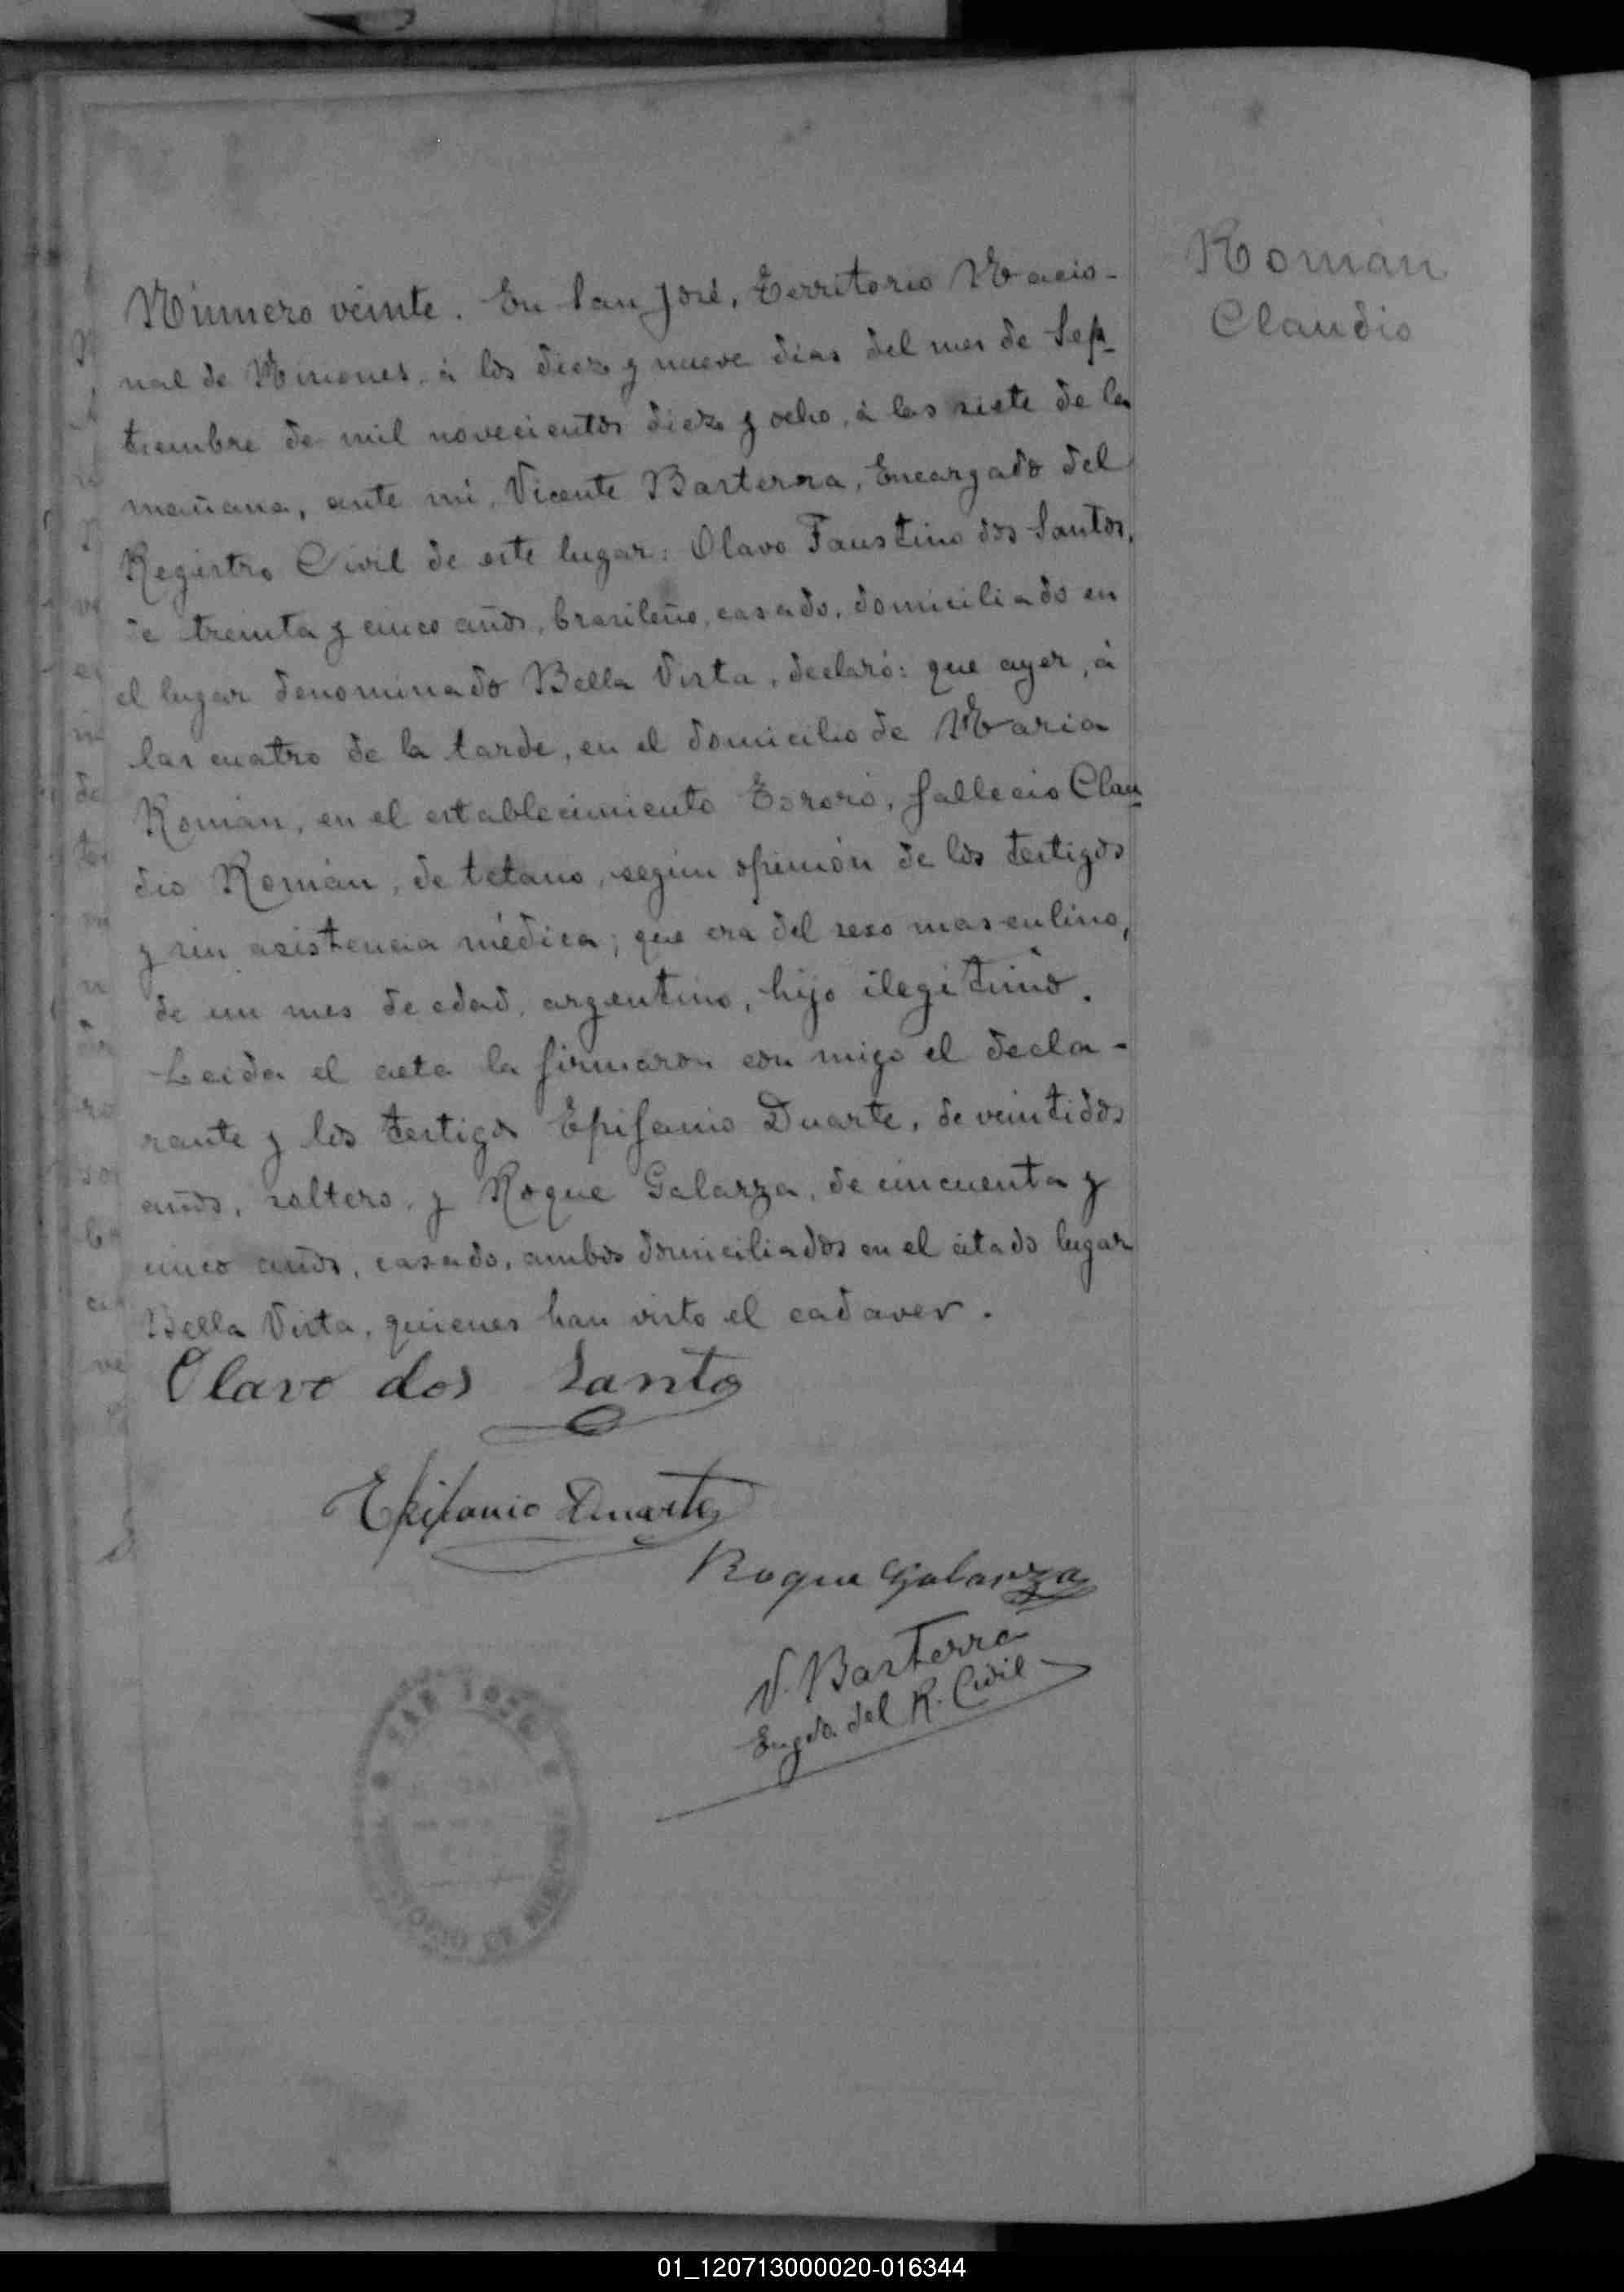 Román
Claudio
Número veinte. En San José, Territorio Nacio-
nal de Misiones, á los diez y nueve días del mes de Sep-
tiembre de mil novecientos diez y ocho, á las siete de la
mañana, ante mi, Vicente Basterra, Encargado del
Registro Civil de este lugar: Olavo Faustino dos Santos,
de treinta y cinco años, brasileño, casado, domiciliado en
el lugar denominado Bella Vista, declaró: que ayer, á
las cuatro de la tarde, en el domicilio de Maria
Román, en el establecimiento Tororó, falleció Clau
dio Román, de tetano, según opinión de los testigos
y sin asistencia médica; que era del sexo masculino,
de un mes de edad, argentino, hijo ilegitimo.
Leida el acta la firmaron con migo el decla-
rante y los testigos Epifanio Duarte, de veintidos
años, soltero, y Roque Galarza, de cincuenta y
cinco años, casado, ambos domiciliados en el citado lugar
Bella Vista, quienes han visto el cadaver.
Olavo dos Santos
Epifanio Duarte
Roque Galarza
V. Basterra
Engdo. del R. Civil
SAN JOSE
TERRITORIO DE MISIONES
01_120713000020-016344